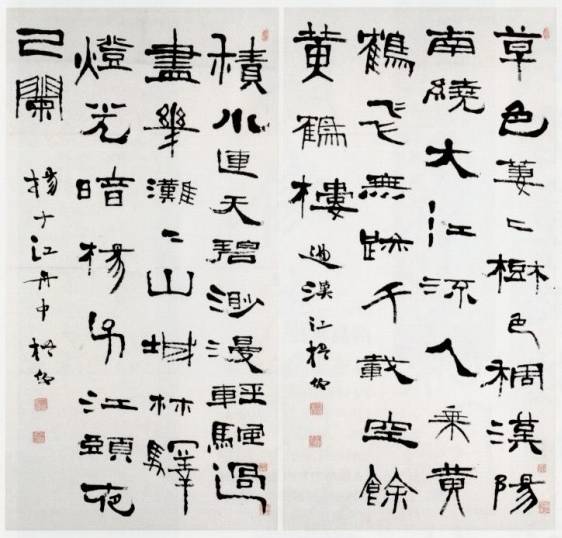 草色萋〻樹色稠漢陽
南繞大江流人乘黄
鶴飛無跡千載空餘
黄鶴樓 過漢江
積水連天碧渺漫輕颿過
盡幾灘〻山城林驛
燈光暗楊子江頭夜
已闌 揚子江舟中